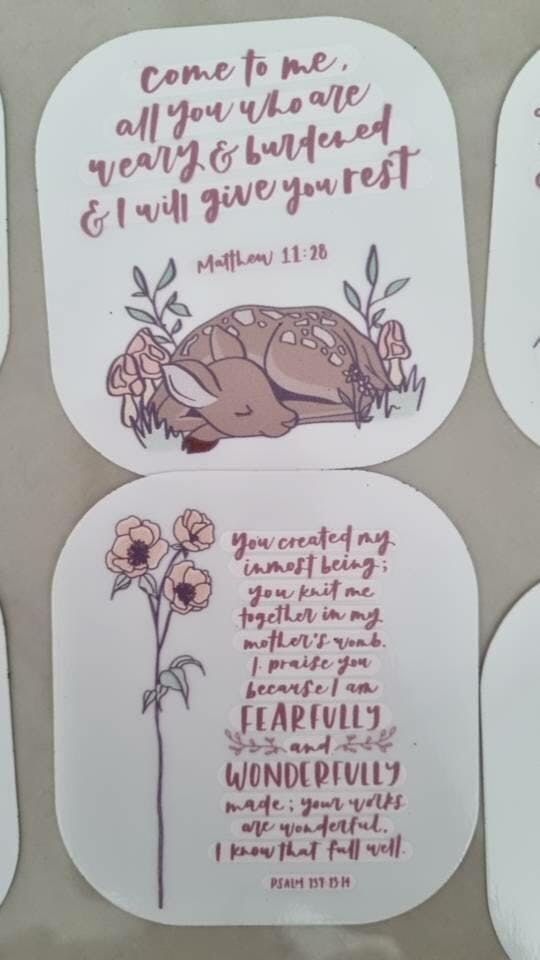 Come to me,
all you who are
weary & burdened
& I will give you rest
Matthew 11:28
You created my
inmost being;
you knit me
together in my
mother's womb.
I praise you
because I am
FEARFULLY
and
WONDERFULLY
made; your works
are wonderful,
I know that full well.
PSALM 139:13-14